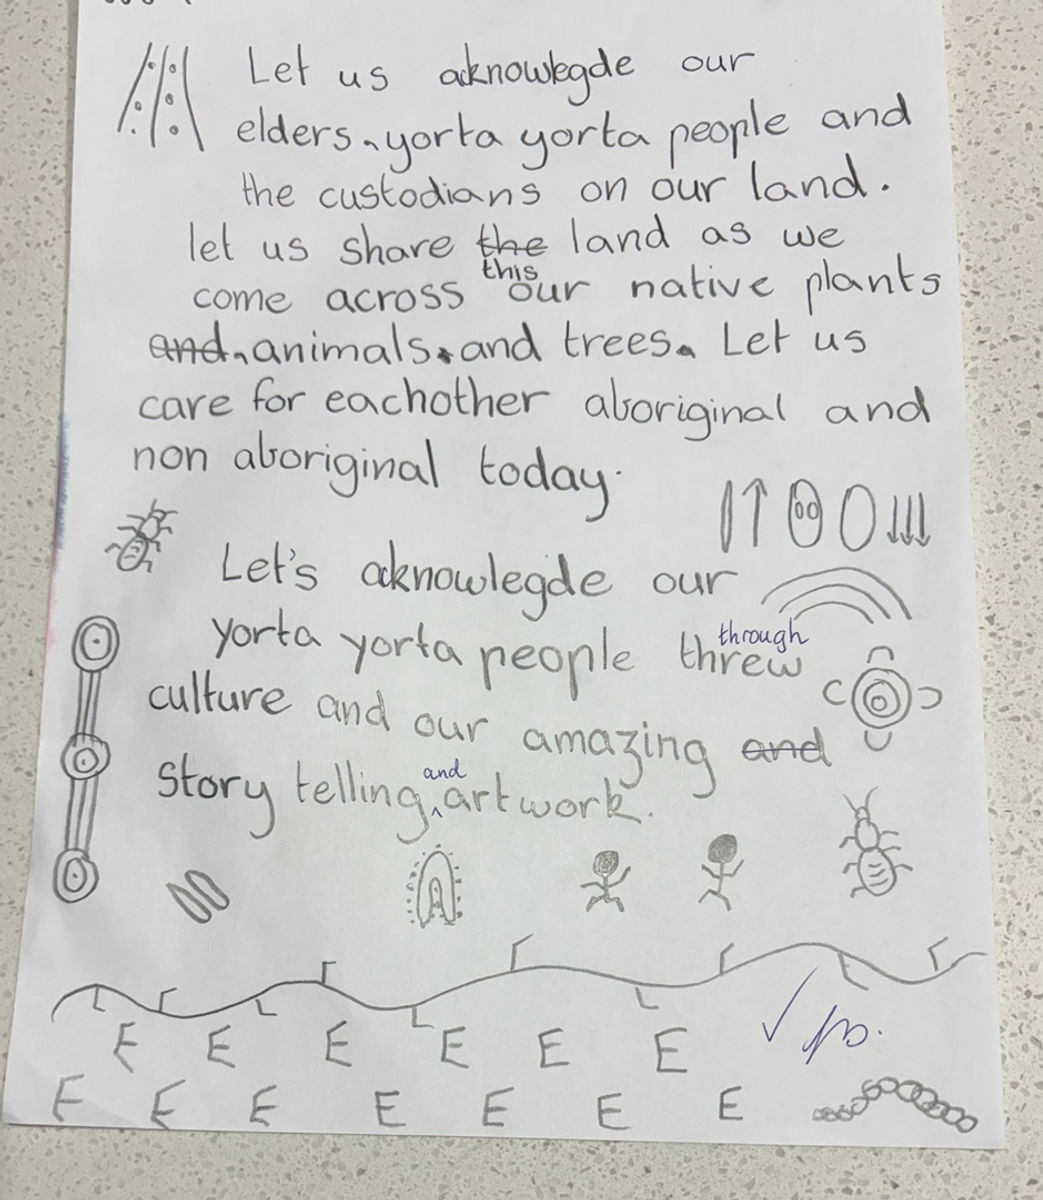 Let us aknowlegde our
elders, yorta yorta people and
the custodians on our land.
let us share the land as we
this
come across our native plants
and, animals. and trees. Let us
care for eachother aboriginal and
non aboriginal today.
Let's aknowlegde our
yorta yorta people threw through
culture and our amazing and
story telling, and artwork.
E E E E E E
E E E E E E E